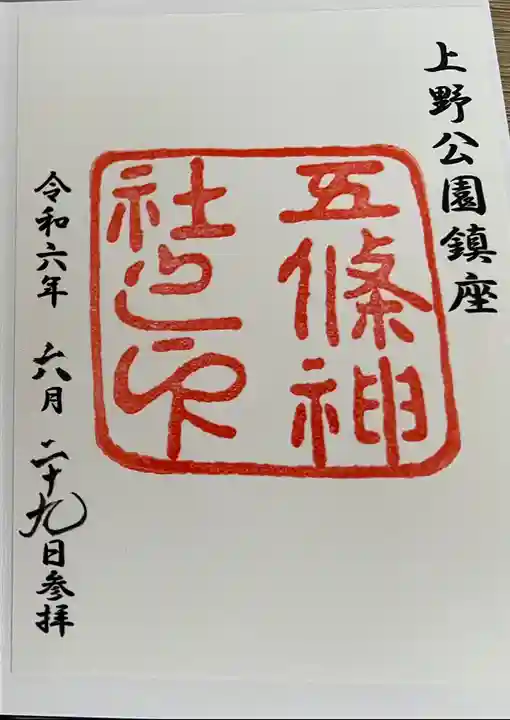 上野公園鎮座
五條神
社之印
令和六年 六月二十九日参拝